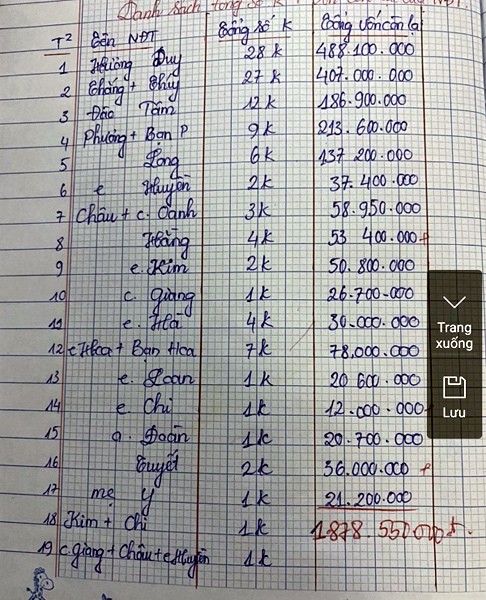 Danh sách tổng số K
T² Tên NĐT Tổng số K Tổng vốn còn lại
1 Hương Duy 28 k 488.100.000
2 Thắng + Thúy 27 k 407.000.000
3 Đào Tâm 12 k 186.900.000
4 Phương + Bạn P 9 k 213.600.000
5 Long 6 k 137 200.000
6 e Huyền 2 k 37.400.000
7 Châu + c. Oanh 3 k 58.950.000
8 Hằng 4 k 53 400.000
9 e. Kim 2 k 50.800.000
10 c. Giang 1 k 26.700.000
11 e. Hà 4 k 30.000.000
12 c Hoa + Bạn Hoa 7 k 78.000.000
13 e. Loan 1 k 20 600.000
14 e. Chi 1 k 12.000.000
15 a. Đoàn 1 k 20.700.000
16 Tuyết 2 k 36.000.000
17 mẹ Y 1 k 21.200.000
18 Kim + Chi 1 k 1878.550.000
19 c. Giang + Châu + e Huyền 1 k
Trang
xuống
Lưu